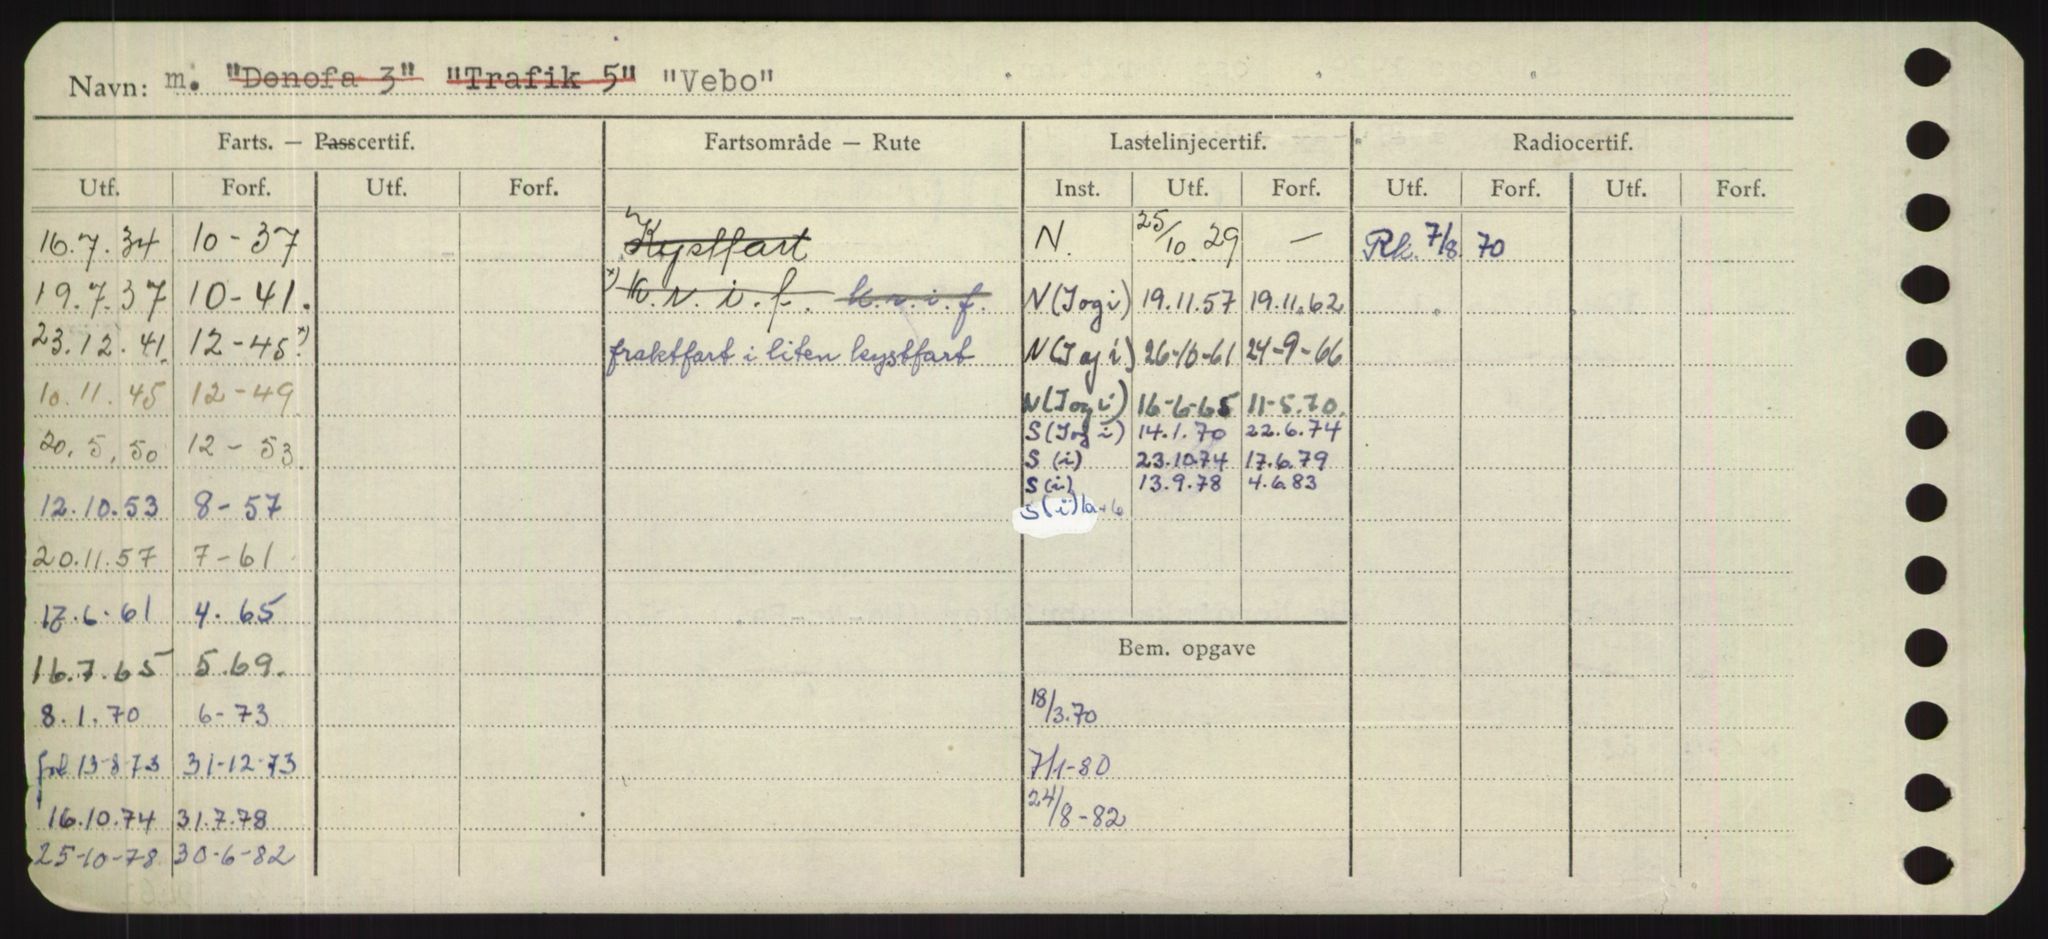 Navn: m. "Denofa 3" "Trafik 5" "Vebo"
Farts. — Passcertif. Fartsområde — Rute Lastelinjecertif. Radiocertif.
Utf. Forf. Utf. Forf. Inst. Utf. Forf. Utf. Forf. Utf. Forf.
16.7.34 10-37 Kystfart N. 25/10.29 — Rk. 7/8. 70
19.7.37 10-41. x) k.n.i.f. k.n.i.f. N(Iogi) 19.11.57 19.11.62
23.12.41. 12-45 x) fraktfart i liten kystfart N(Iogi) 26-10-61 24-9-66
10.11.45 12-49 N(Iogi) 16-6-65 11-5.70.
S(Iogi) 14.1.70 22.6.74
20.5.50 12-53 S(i) 23.10.74 17.6.79
S(i) 13.9.78 4.6.83
12.10.53 8-57 S(i)
20.11.57 7-61
17.6.61 4.65
Bem. opgave
16.7.65 5.69.
8.1.70 6-73 18/3.70
13-8-73 31-12-73 7/1-80
16.10.74 31.7.78 24/8-82
25-10-78 30-6-82